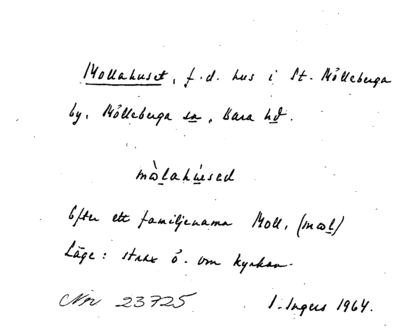 Mollahuset, f.d. hus i St. Mölleberga
by, Mölleberga sn, Bara hd.
mòlahúsad
Efter ett familjenamn Moll, (mɷl)
Läge: strax ö. om kyrkan.
Nr 23725 I. Ingers 1964.